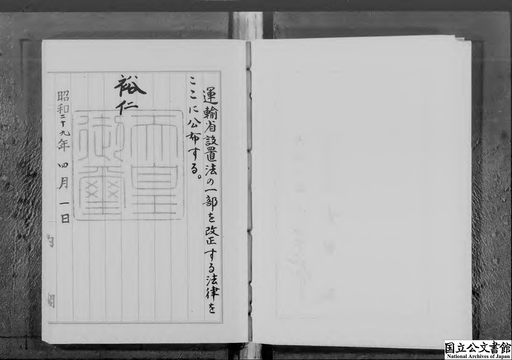 運輸省設置法の一部を改正する法律を
ここに公布する。
裕仁
天皇
御璽
昭和二十九年四月一日
国立公文書館
National Archives of Japan